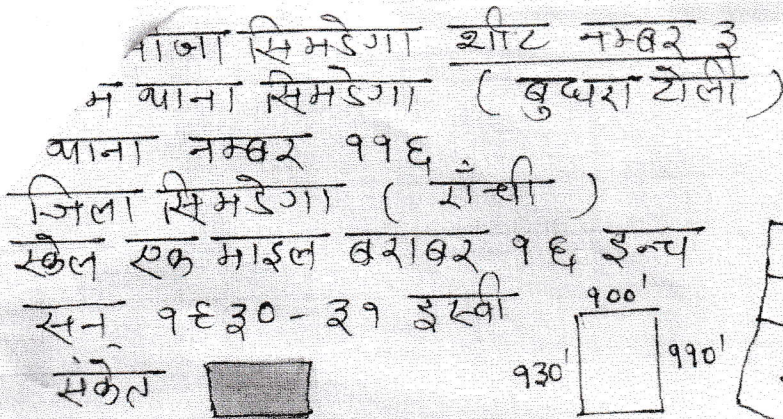 सिमडेगा शीट नम्बर ३
म थाना सिमडेगा ( बुधरा टोली )
थाना नम्बर ११६
जिला सिमडेगा ( राँची )
स्केल एक माइल बराबर १६ इन्च
सन् १९३०-३१ इस्वी
१००'
१३०' ११०'
संकेत